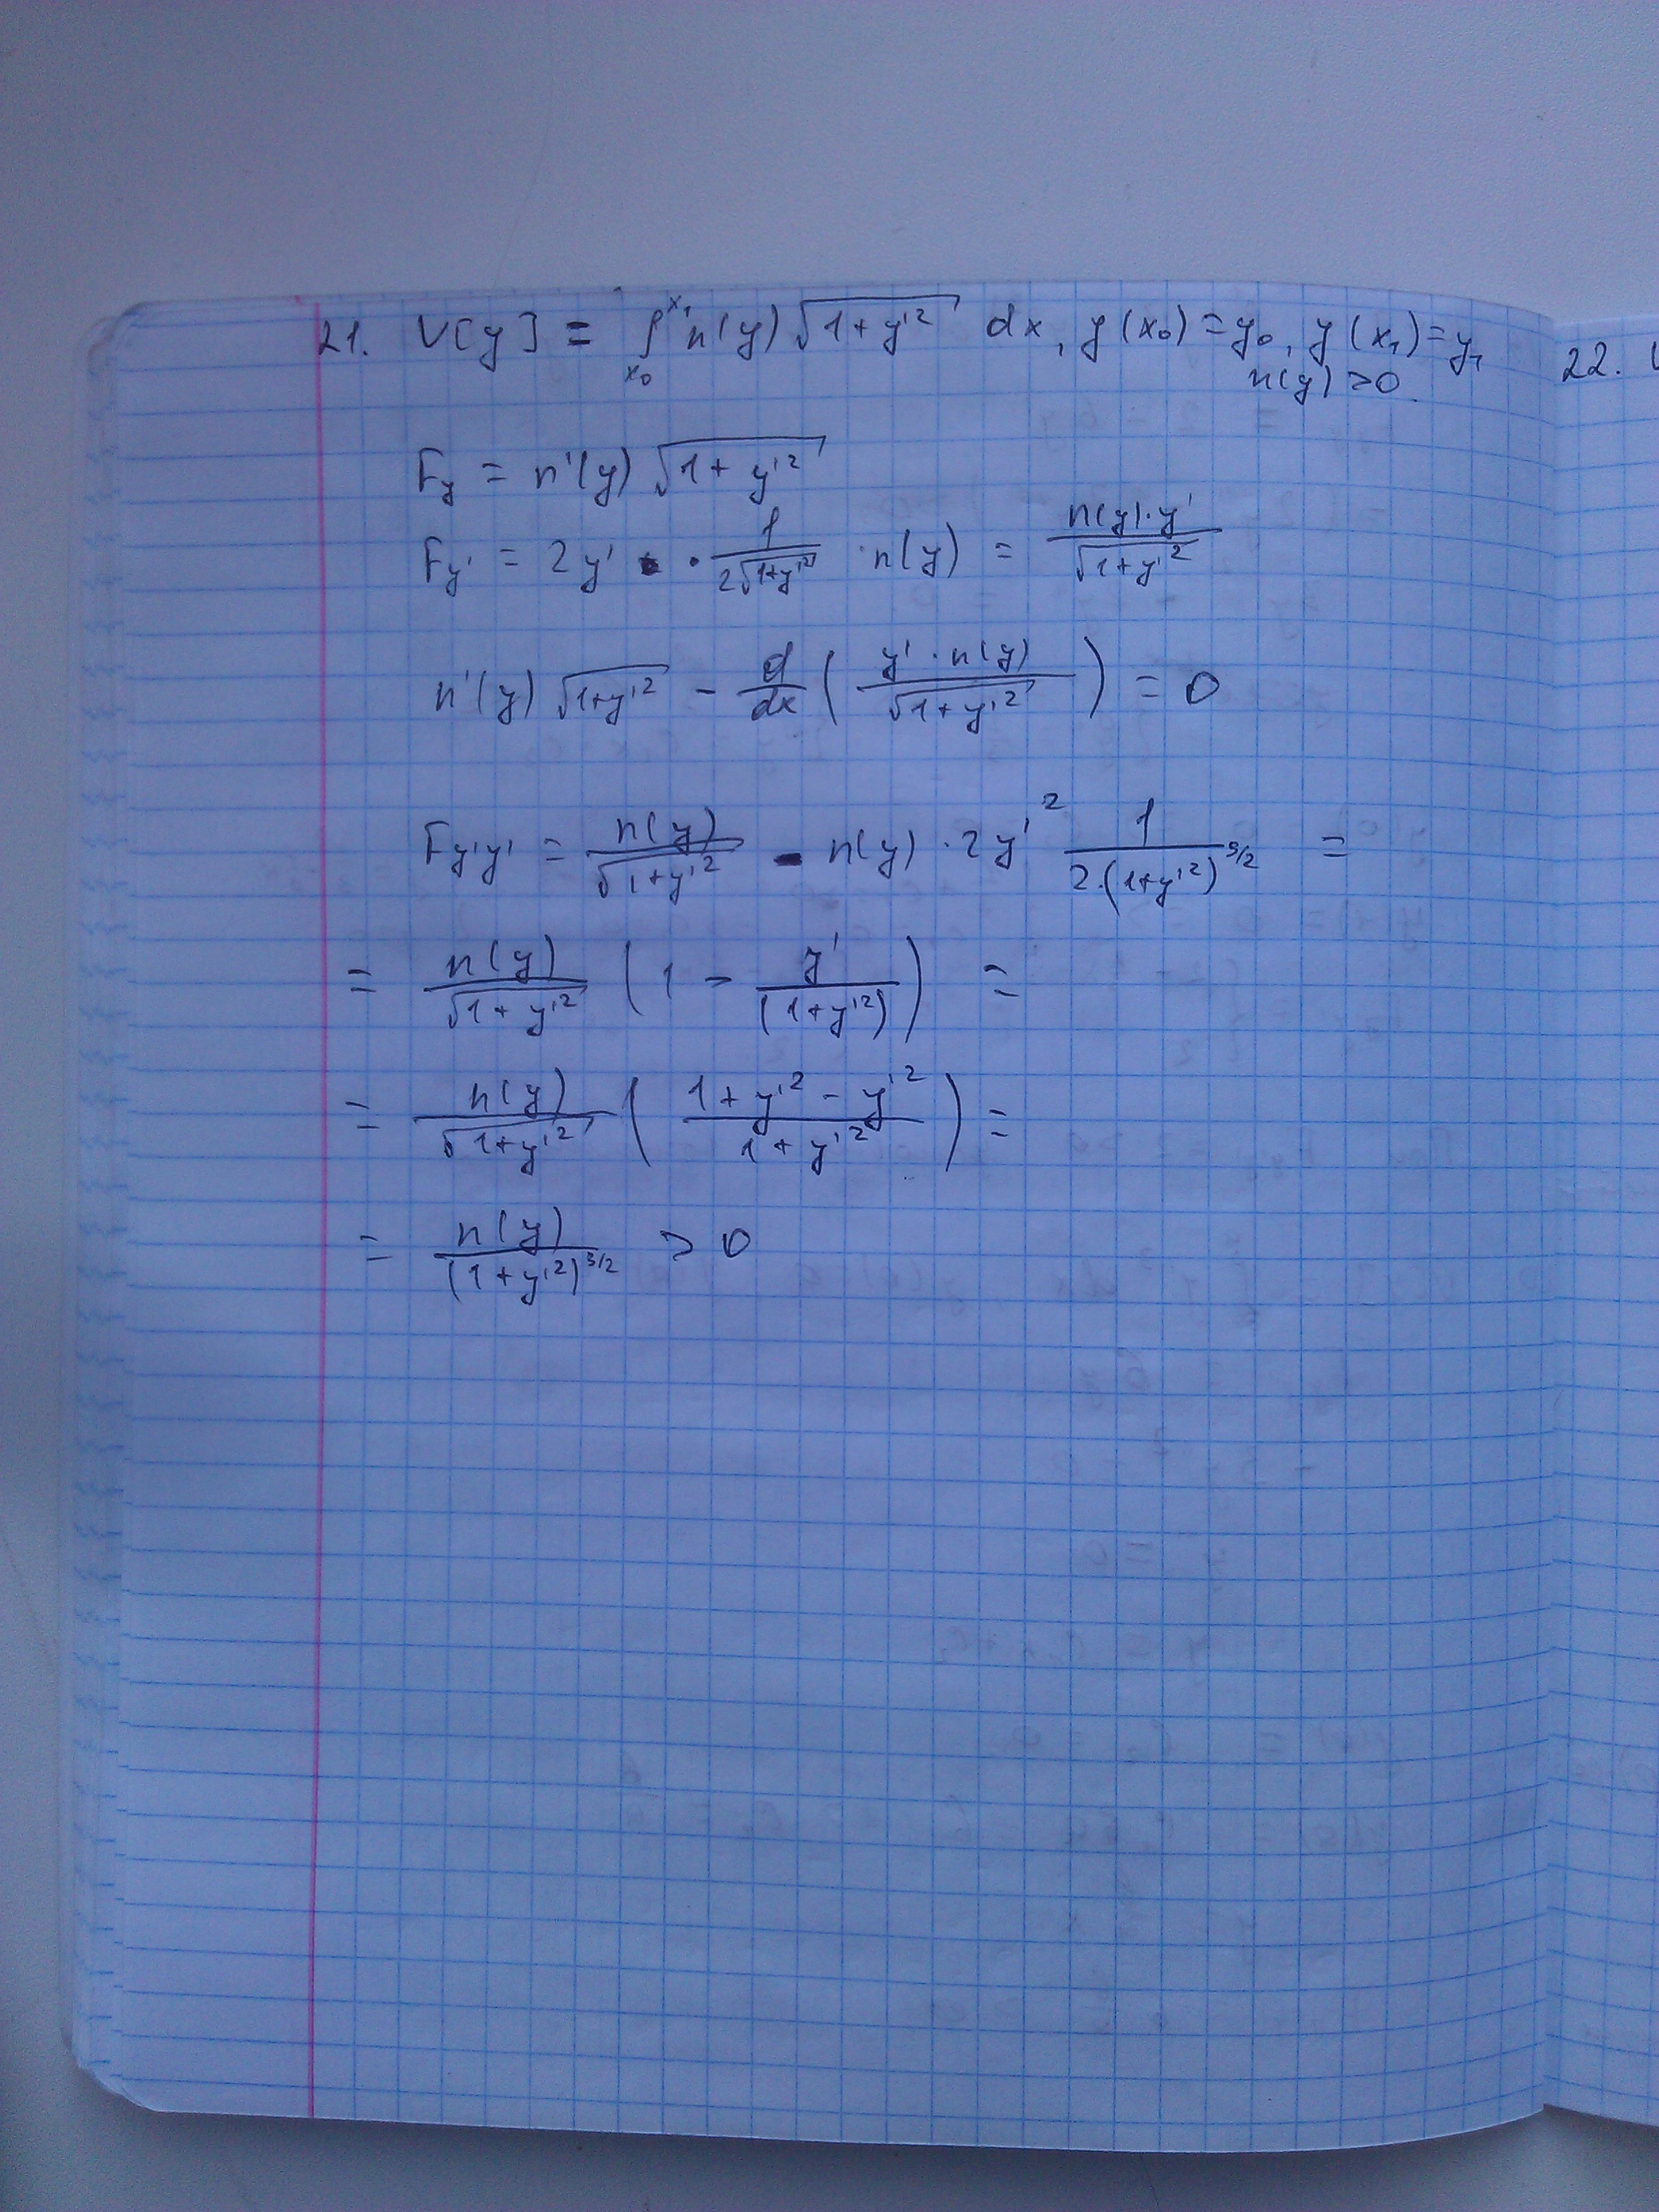 21. V[y] = ∫_{x₀}^{x₁} n(y) √(1+y'²) dx, y(x₀)=y₀, y(x₁)=y₁
n(y)>0.
22.
F_y = n'(y) √(1+y'²)
F_y' = 2y' · 1/(2√(1+y'²)) · n(y) = n(y)·y' / √(1+y'²)
n'(y) √(1+y'²) − d/dx ( y'·n(y) / √(1+y'²) ) = 0
F_y'y' = n(y)/√(1+y'²) − n(y)·2y'² 1/(2·(1+y'²)^{3/2}) =
= n(y)/√(1+y'²) (1 − y'/(1+y'²)) =
= n(y)/√(1+y'²) ( (1+y'²−y'²)/(1+y'²) ) =
= n(y)/(1+y'²)^{3/2} > 0